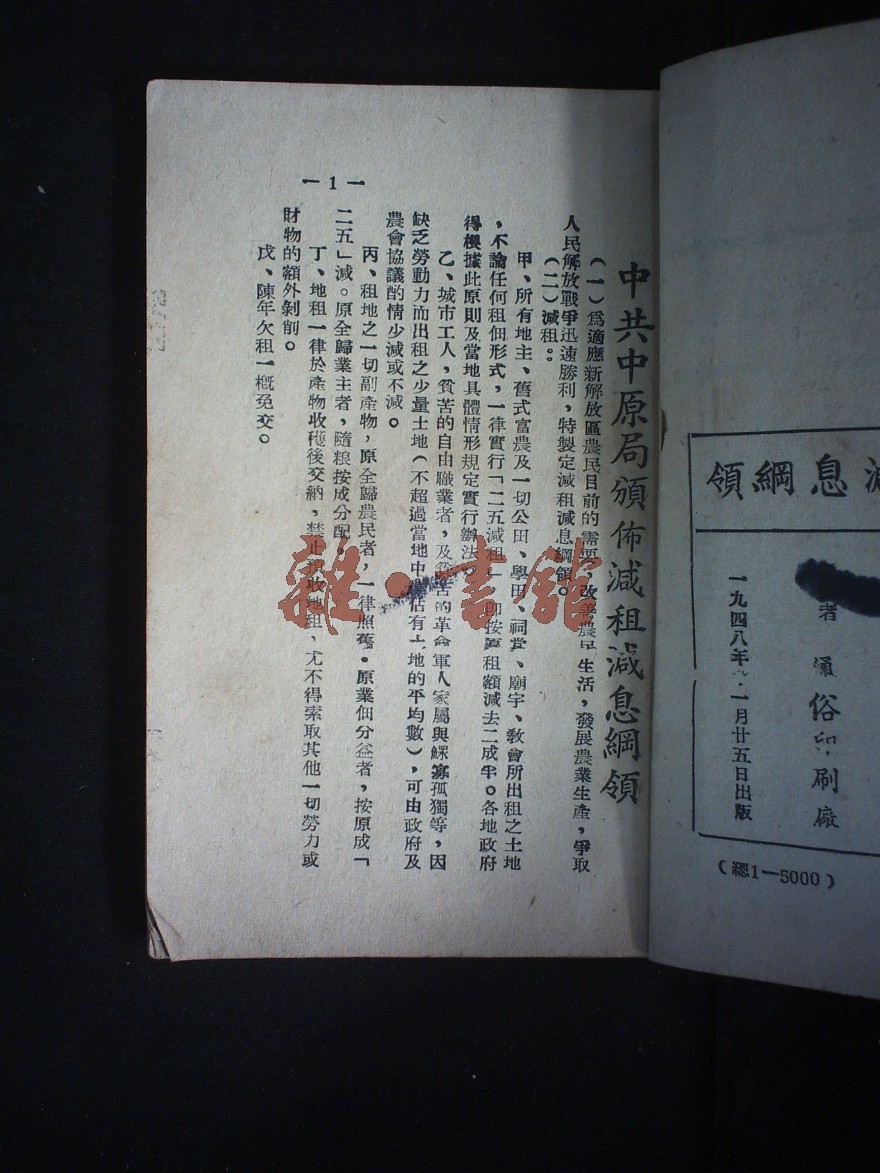 減息綱領
者 通俗印刷廠
一九四八年 一月廿五日出版
（總1—5000）
中共中原局頒佈減租減息綱領
（一）爲適應新解放區農民目前的需要，改善農民生活，發展農業生產，爭取
人民解放戰爭迅速勝利，特製定減租減息綱領。
（二）減租。
甲、所有地主、舊式富農及一切公田、學田、祠堂、廟宇、敎會所出租之土地
，不論任何租佃形式，一律實行「二五減租」即按原租額減去二成半。各地政府
得根據此原則及當地具體情形規定實行辦法。
乙、城市工人，貧苦的自由職業者，及貧苦的革命軍人家屬與鰥寡孤獨等，因
缺乏勞動力而出租之少量土地（不超過當地中 佔有土地的平均數），可由政府及
農會協議酌情少減或不減。
丙、租地之一切副產物，原全歸農民者，一律照舊。原業佃分益者，按原成「
二五」減。原全歸業主者，隨粮按成分配。
丁、地租一律於產物收穫後交納，禁止預收地租，尤不得索取其他一切勞力或
財物的額外剝削。
戊、陳年欠租一概免交。
—1—
雜·書館